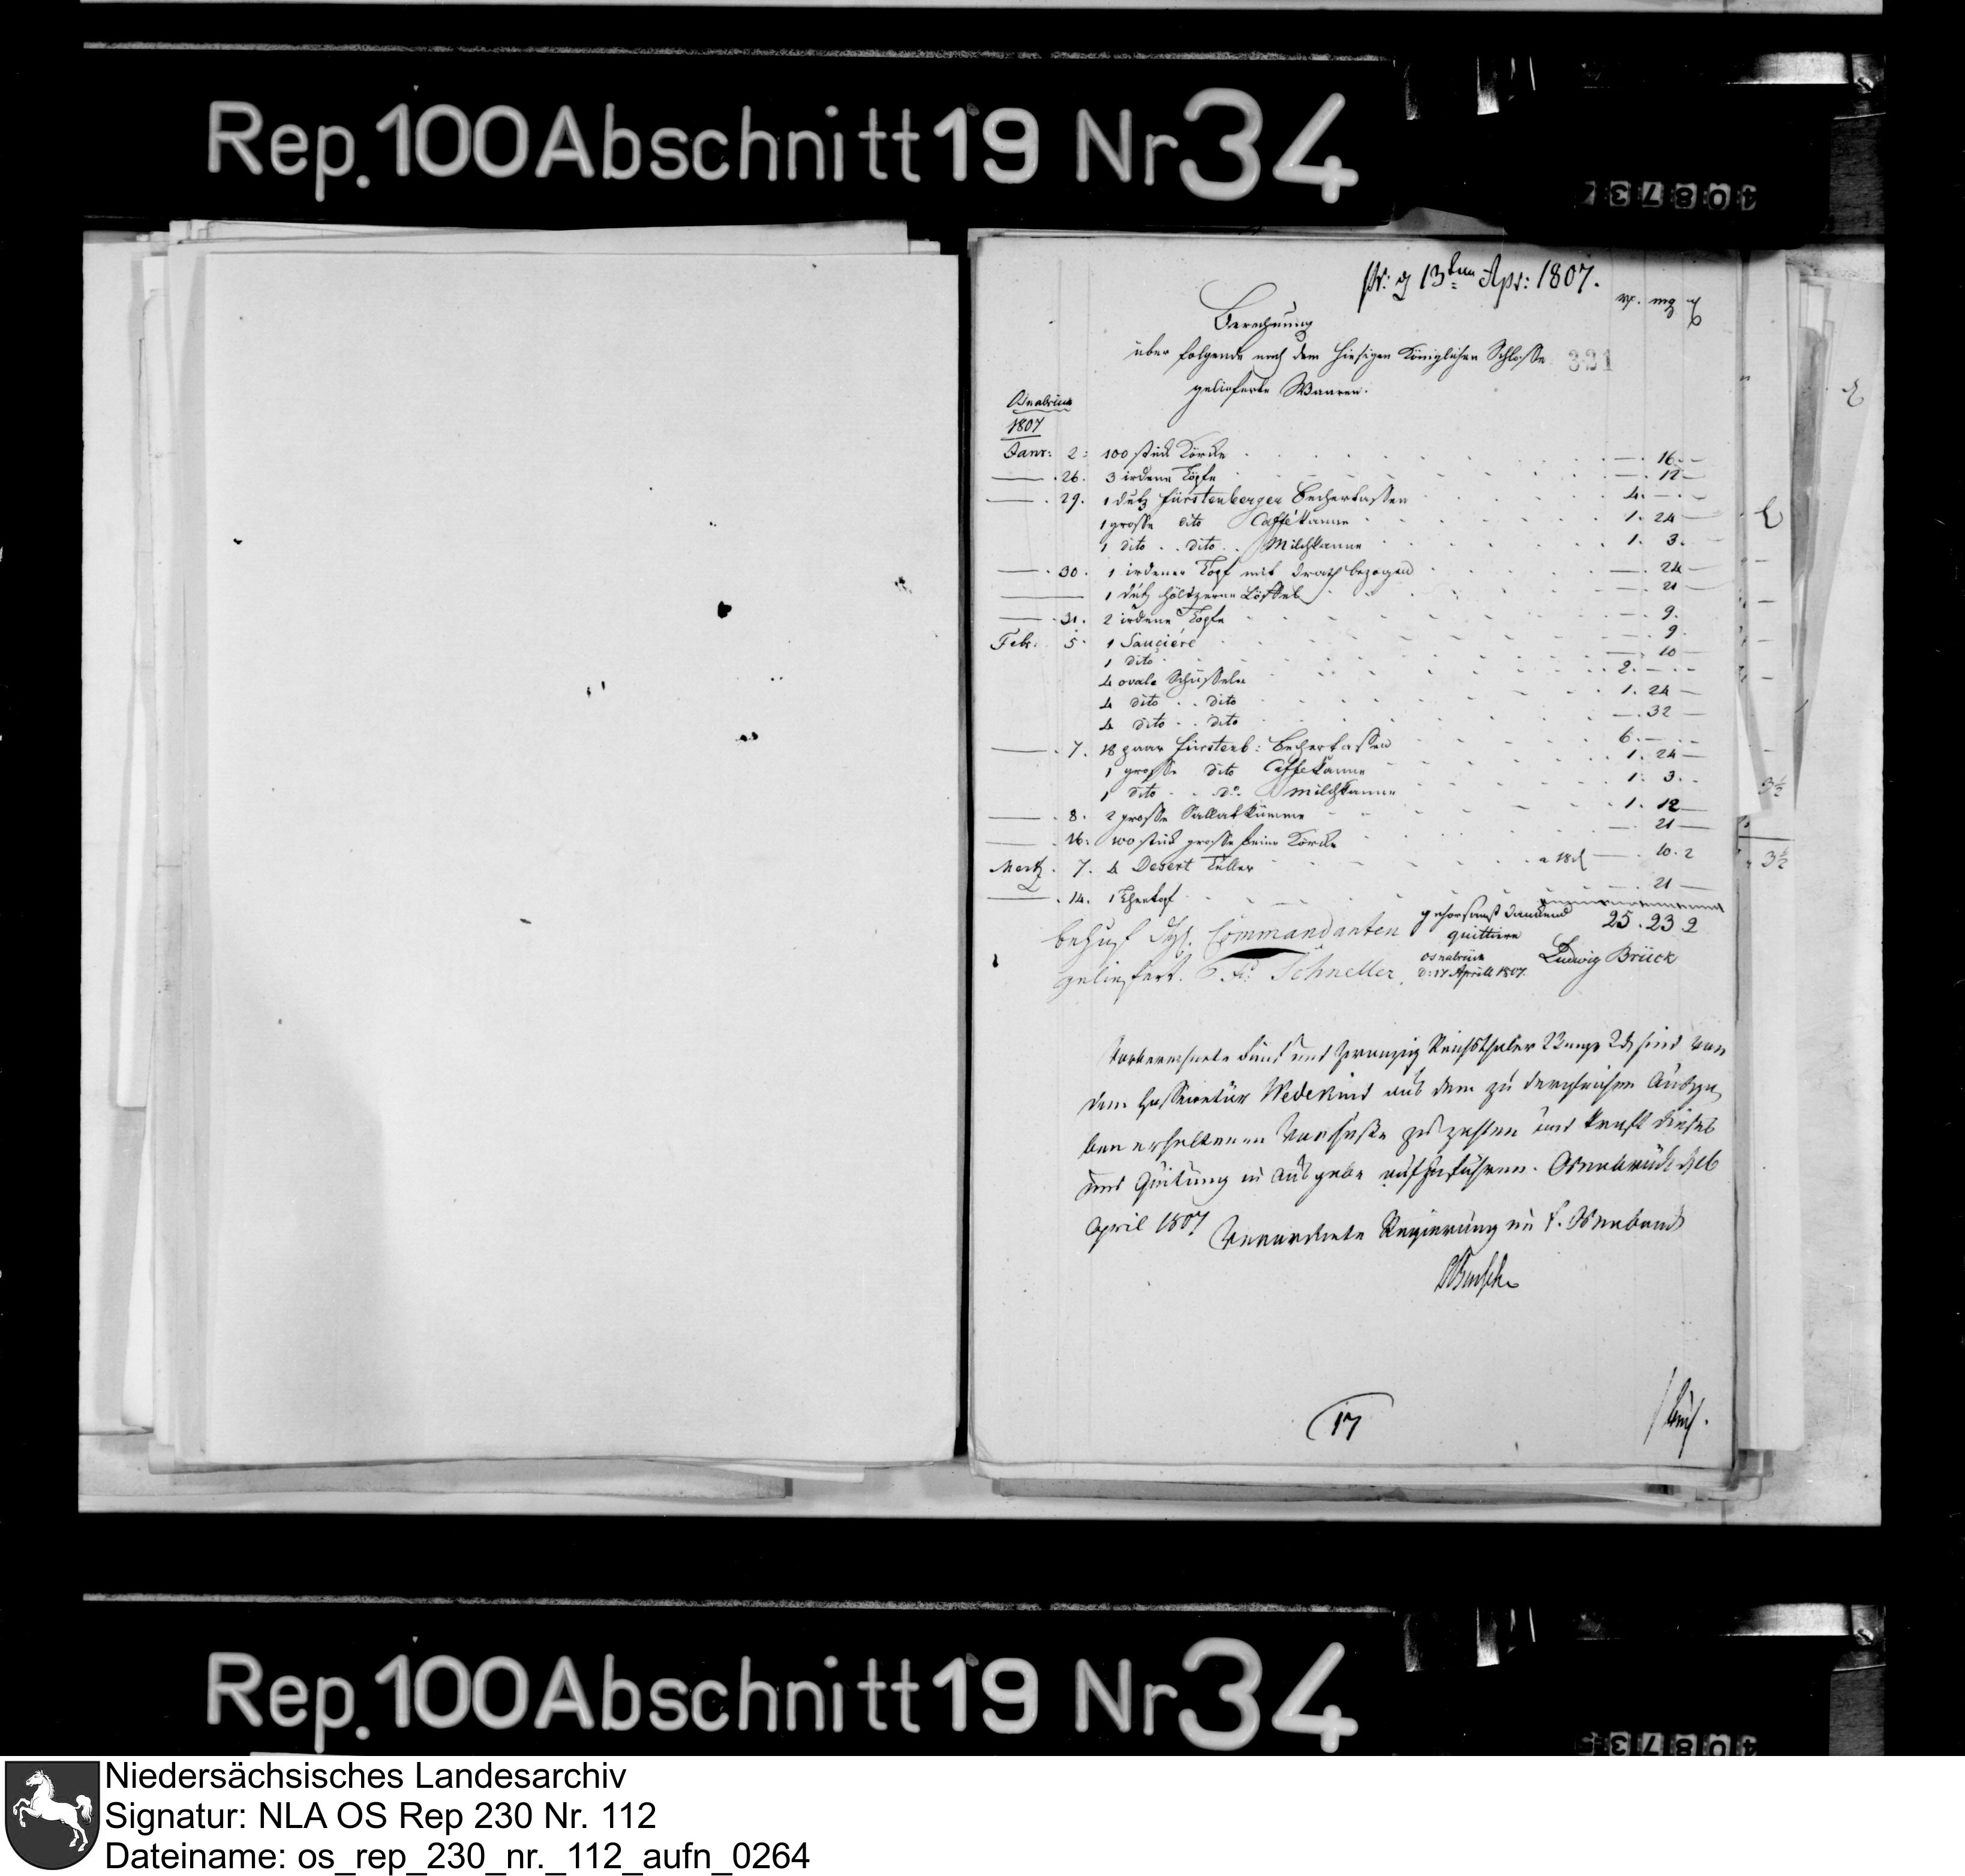 Rep. 100 Abschnitt 19 Nr 34
pr: d 13ten Apr: 1807.
rx. mg d
Berechnung
über folgende nach dem hiesigen Königlichen Schlosse
321
gelieferte Waaren.
Osnabrück
1807
Janr: 2: 100 stück Körcke — 16. —
— . 26. 3 irdene Töpfe — 12 —
— . 29. 1 dutz fürstenberger Becherlassen 4. — . —
1 grosse dito Caffékanne 1. 24 —
1 dito . . dito . . Milchkanne 1. 3. —
— . 30. 1 irdener Topf mit drath bezogen — . 24 —
— 1 dutz höltzerne Löffel — . 21 —
— . 31. 2 irdene Töpfe — . 9.
Febr: 5. 1 Sauçiére — . 9.
1 dito — 10
4 ovale Schüsseln 2. — . —
4 dito . . dito 1. 24 —
4 dito . . dito — . 32 —
— . 7. 18 paar fürstenb: Bechertassen 6. — . —
1 grosse dito Caffekanne 1. 24 —
1 dito . . do. Milchkanne 1. 3. .
— . 8. 2 grosse Sallatkümme 1. 12 —
— 26. 100 stück grosse feine Körcke — 21 —
Mertz . 7. 4 Desert Teller a 18 d — . 10. 2
— . 14. 1 Theetopf — . 21 —
25. 23 2
behuf des Commandanten
geliefert. Schneller.
gehorsamst dankend
quittire
Osnabrück
d: 17 Aprill 1807.
Ludwig Brück
Vorberechnete fünf und zwanzig Reichsthaler 23 mgr 2 d sind von
dem Hofsecretär Wedekind aus dem zu dergleichen Ausga
ben erhaltenen Vorschuße zu zahlen und kraft dieses
und Quitung in Ausgabe aufzuführen. Osnabrück
April 1807
Verordnete Regierung im F. Osnabrück
17
3½
3½
Rep. 100 Abschnitt 19 Nr 34
Niedersächsisches Landesarchiv
Signatur: NLA OS Rep 230 Nr. 112
Dateiname: os_rep_230_nr._112_aufn_0264